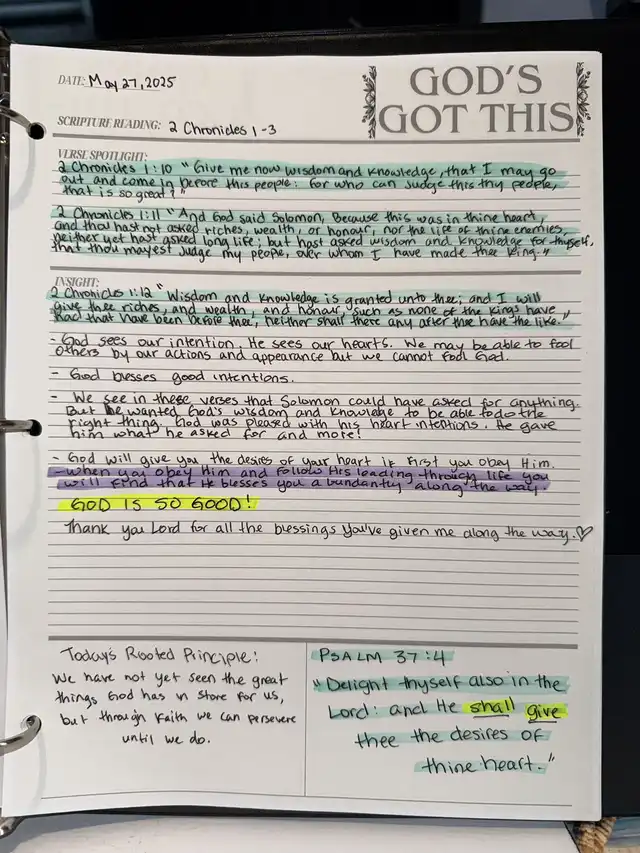 DATE: May 27, 2025
GOD'S
GOT THIS
SCRIPTURE READING: 2 Chronicles 1-3
VERSE SPOTLIGHT:
2 Chronicles 1:10 "Give me now wisdom and knowledge, that I may go
out and come in before this people: for who can judge this thy people,
that is so great?"
2 Chronicles 1:11 "And God said Solomon, Because this was in thine heart,
and thou hast not asked riches, wealth, or honour, nor the life of thine enemies,
neither yet hast asked long life; but hast asked wisdom and knowledge for thyself,
that thou mayest judge my people, over whom I have made thee king."
INSIGHT:
2 Chronicles 1:12 "Wisdom and knowledge is granted unto thee; and I will
give thee riches, and wealth, and honour, such as none of the kings have
had that have been before thee, neither shall there any after thee have the like."
- God sees our intention. He sees our hearts. We may be able to fool
others by our actions and appearance but we cannot fool God.
- God blesses good intentions.
- We see in these verses that Solomon could have asked for anything.
But he wanted God's wisdom and knowledge to be able to do the
right thing. God was pleased with his heart intentions. He gave
him what he asked for and more!
- God will give you the desires of your heart if first you obey Him.
- When you obey Him and follow His leading through life you
will find that He blesses you abundantly along the way.
GOD IS SO GOOD!
Thank you Lord for all the blessings You've given me along the way.♡
Today's Rooted Principle:
We have not yet seen the great
things God has in store for us,
but through faith we can persevere
until we do.
PSALM 37:4
"Delight thyself also in the
Lord: and He shall give
thee the desires of
thine heart."